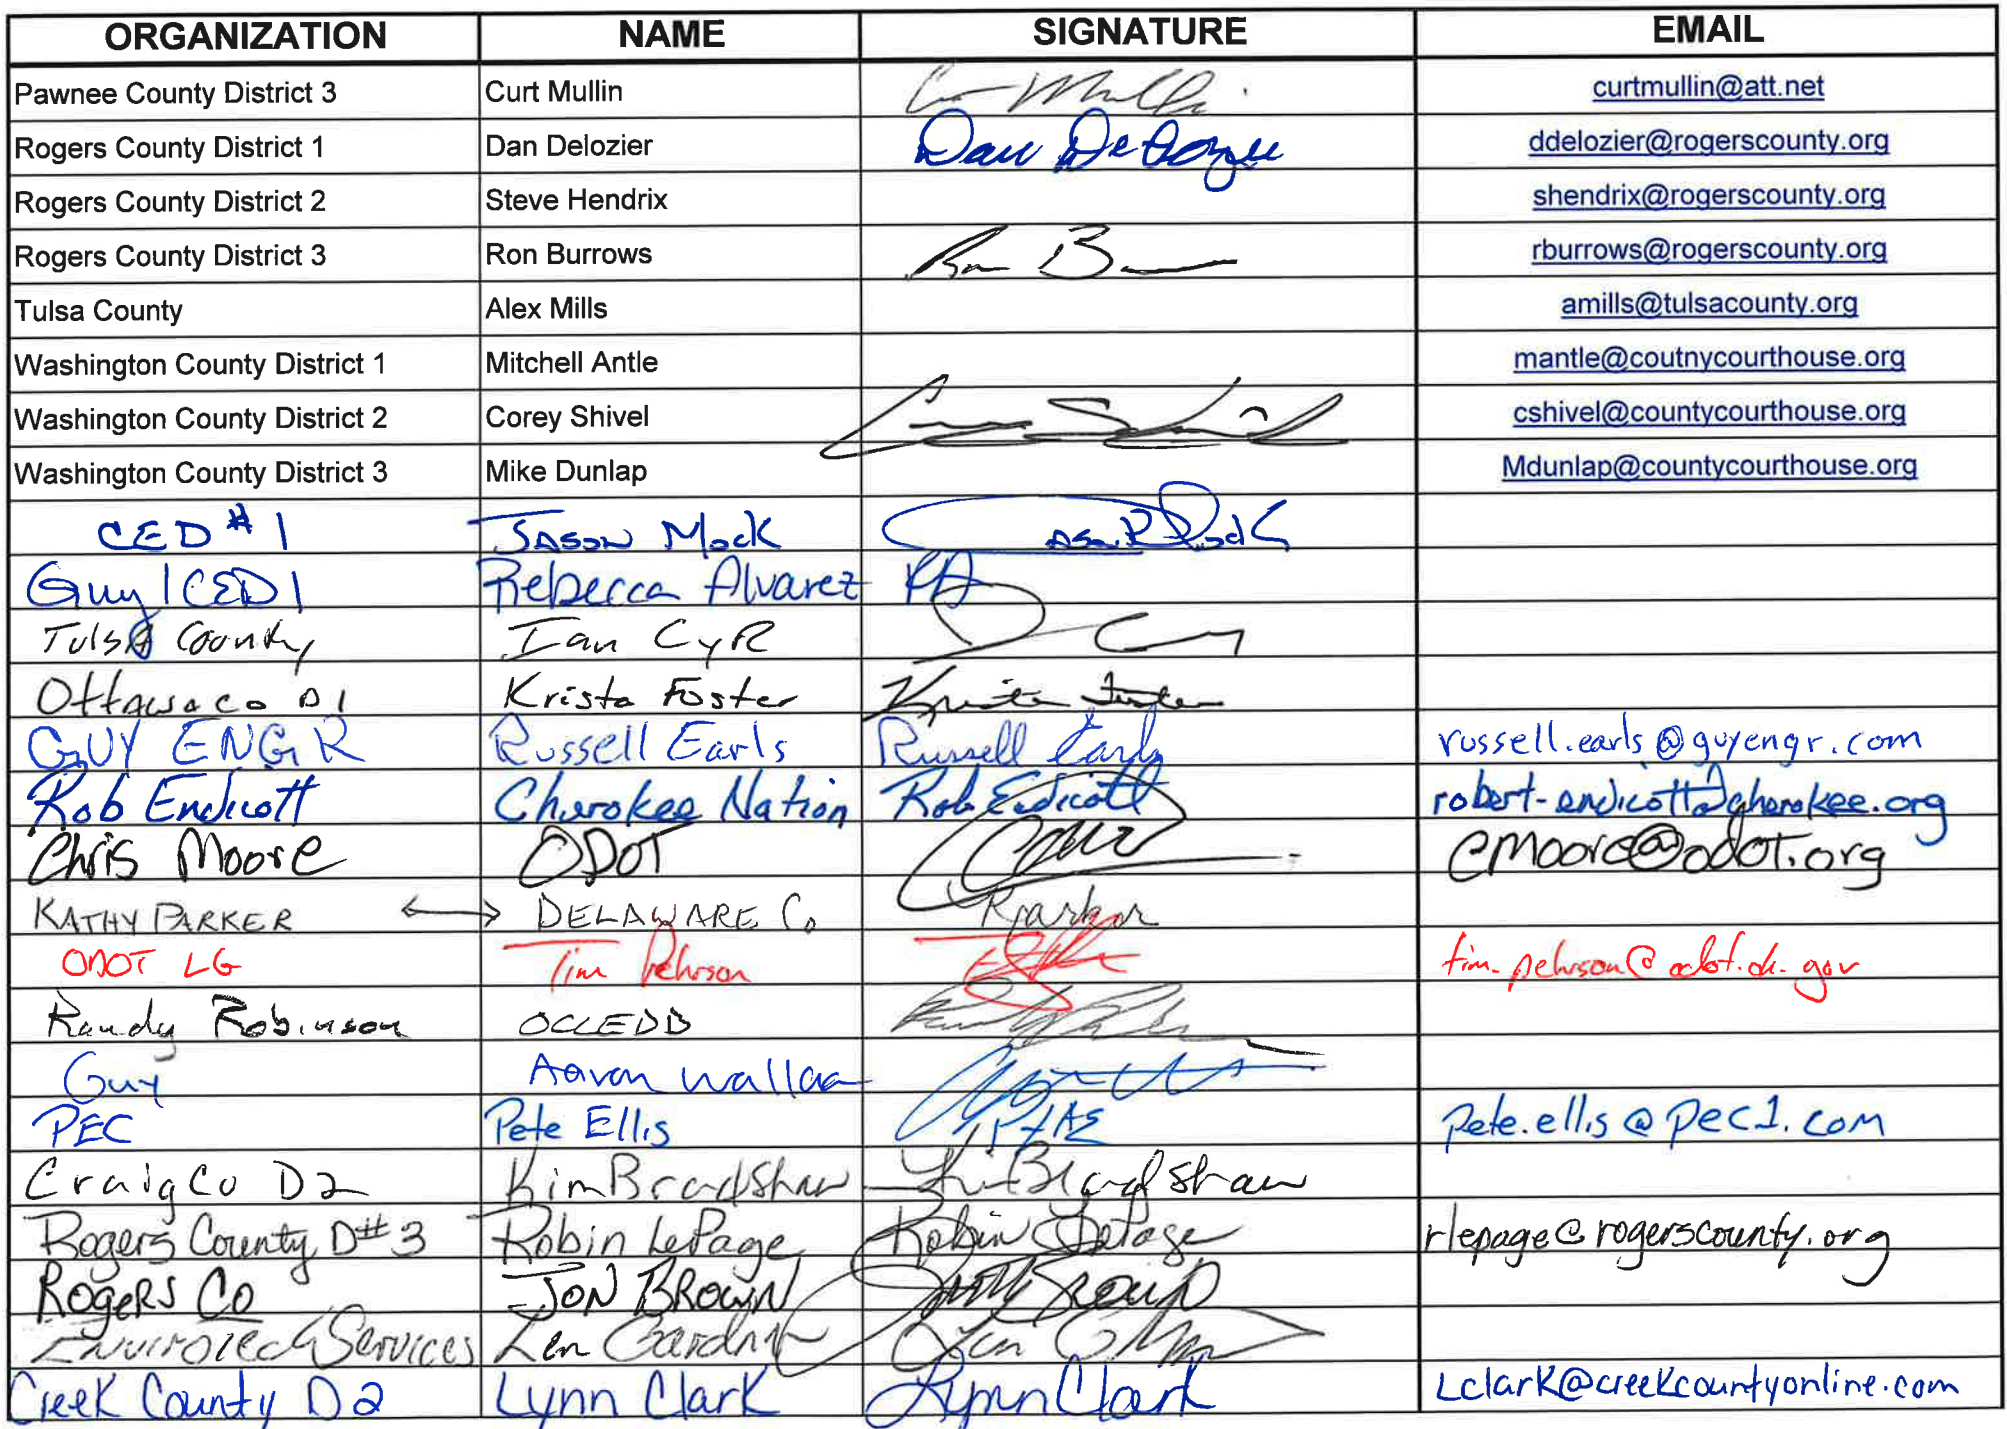 ORGANIZATION NAME SIGNATURE EMAIL
Pawnee County District 3 Curt Mullin curtmullin@att.net
Rogers County District 1 Dan Delozier Dan DeLozier ddelozier@rogerscounty.org
Rogers County District 2 Steve Hendrix shendrix@rogerscounty.org
Rogers County District 3 Ron Burrows rburrows@rogerscounty.org
Tulsa County Alex Mills amills@tulsacounty.org
Washington County District 1 Mitchell Antle mantle@coutnycourthouse.org
Washington County District 2 Corey Shivel cshivel@countycourthouse.org
Washington County District 3 Mike Dunlap Mdunlap@countycourthouse.org
CED #1 JASON Mock
Guy / CED 1 Rebecca Alvarez RA
Tulsa County Ian CyR
Ottawa Co D1 Krista Foster Krista Foster
GUY ENGR Russell Earls Russell Earls russell.earls@guyengr.com
Rob Endicott Cherokee Nation Rob Endicott robert-endicott@cherokee.org
Chris Moore ODOT cmoore@odot.org
KATHY PARKER ↔ DELAWARE Co KParker
ODOT LG Tim Pehrson tim.pehrson@odot.ok.gov
Randy Robinson OCCEDB
Guy Aaron Wallace
PEC Pete Ellis pete.ellis@pec1.com
Craig Co D2 Kim Bradshaw Kim Bradshaw
Rogers County D#3 Robin LePage Robin LePage rlepage@rogerscounty.org
Rogers Co JON BROWN
Envirotech Services Len Gardner
Creek County D2 Lynn Clark Lynn Clark Lclark@creekcountyonline.com